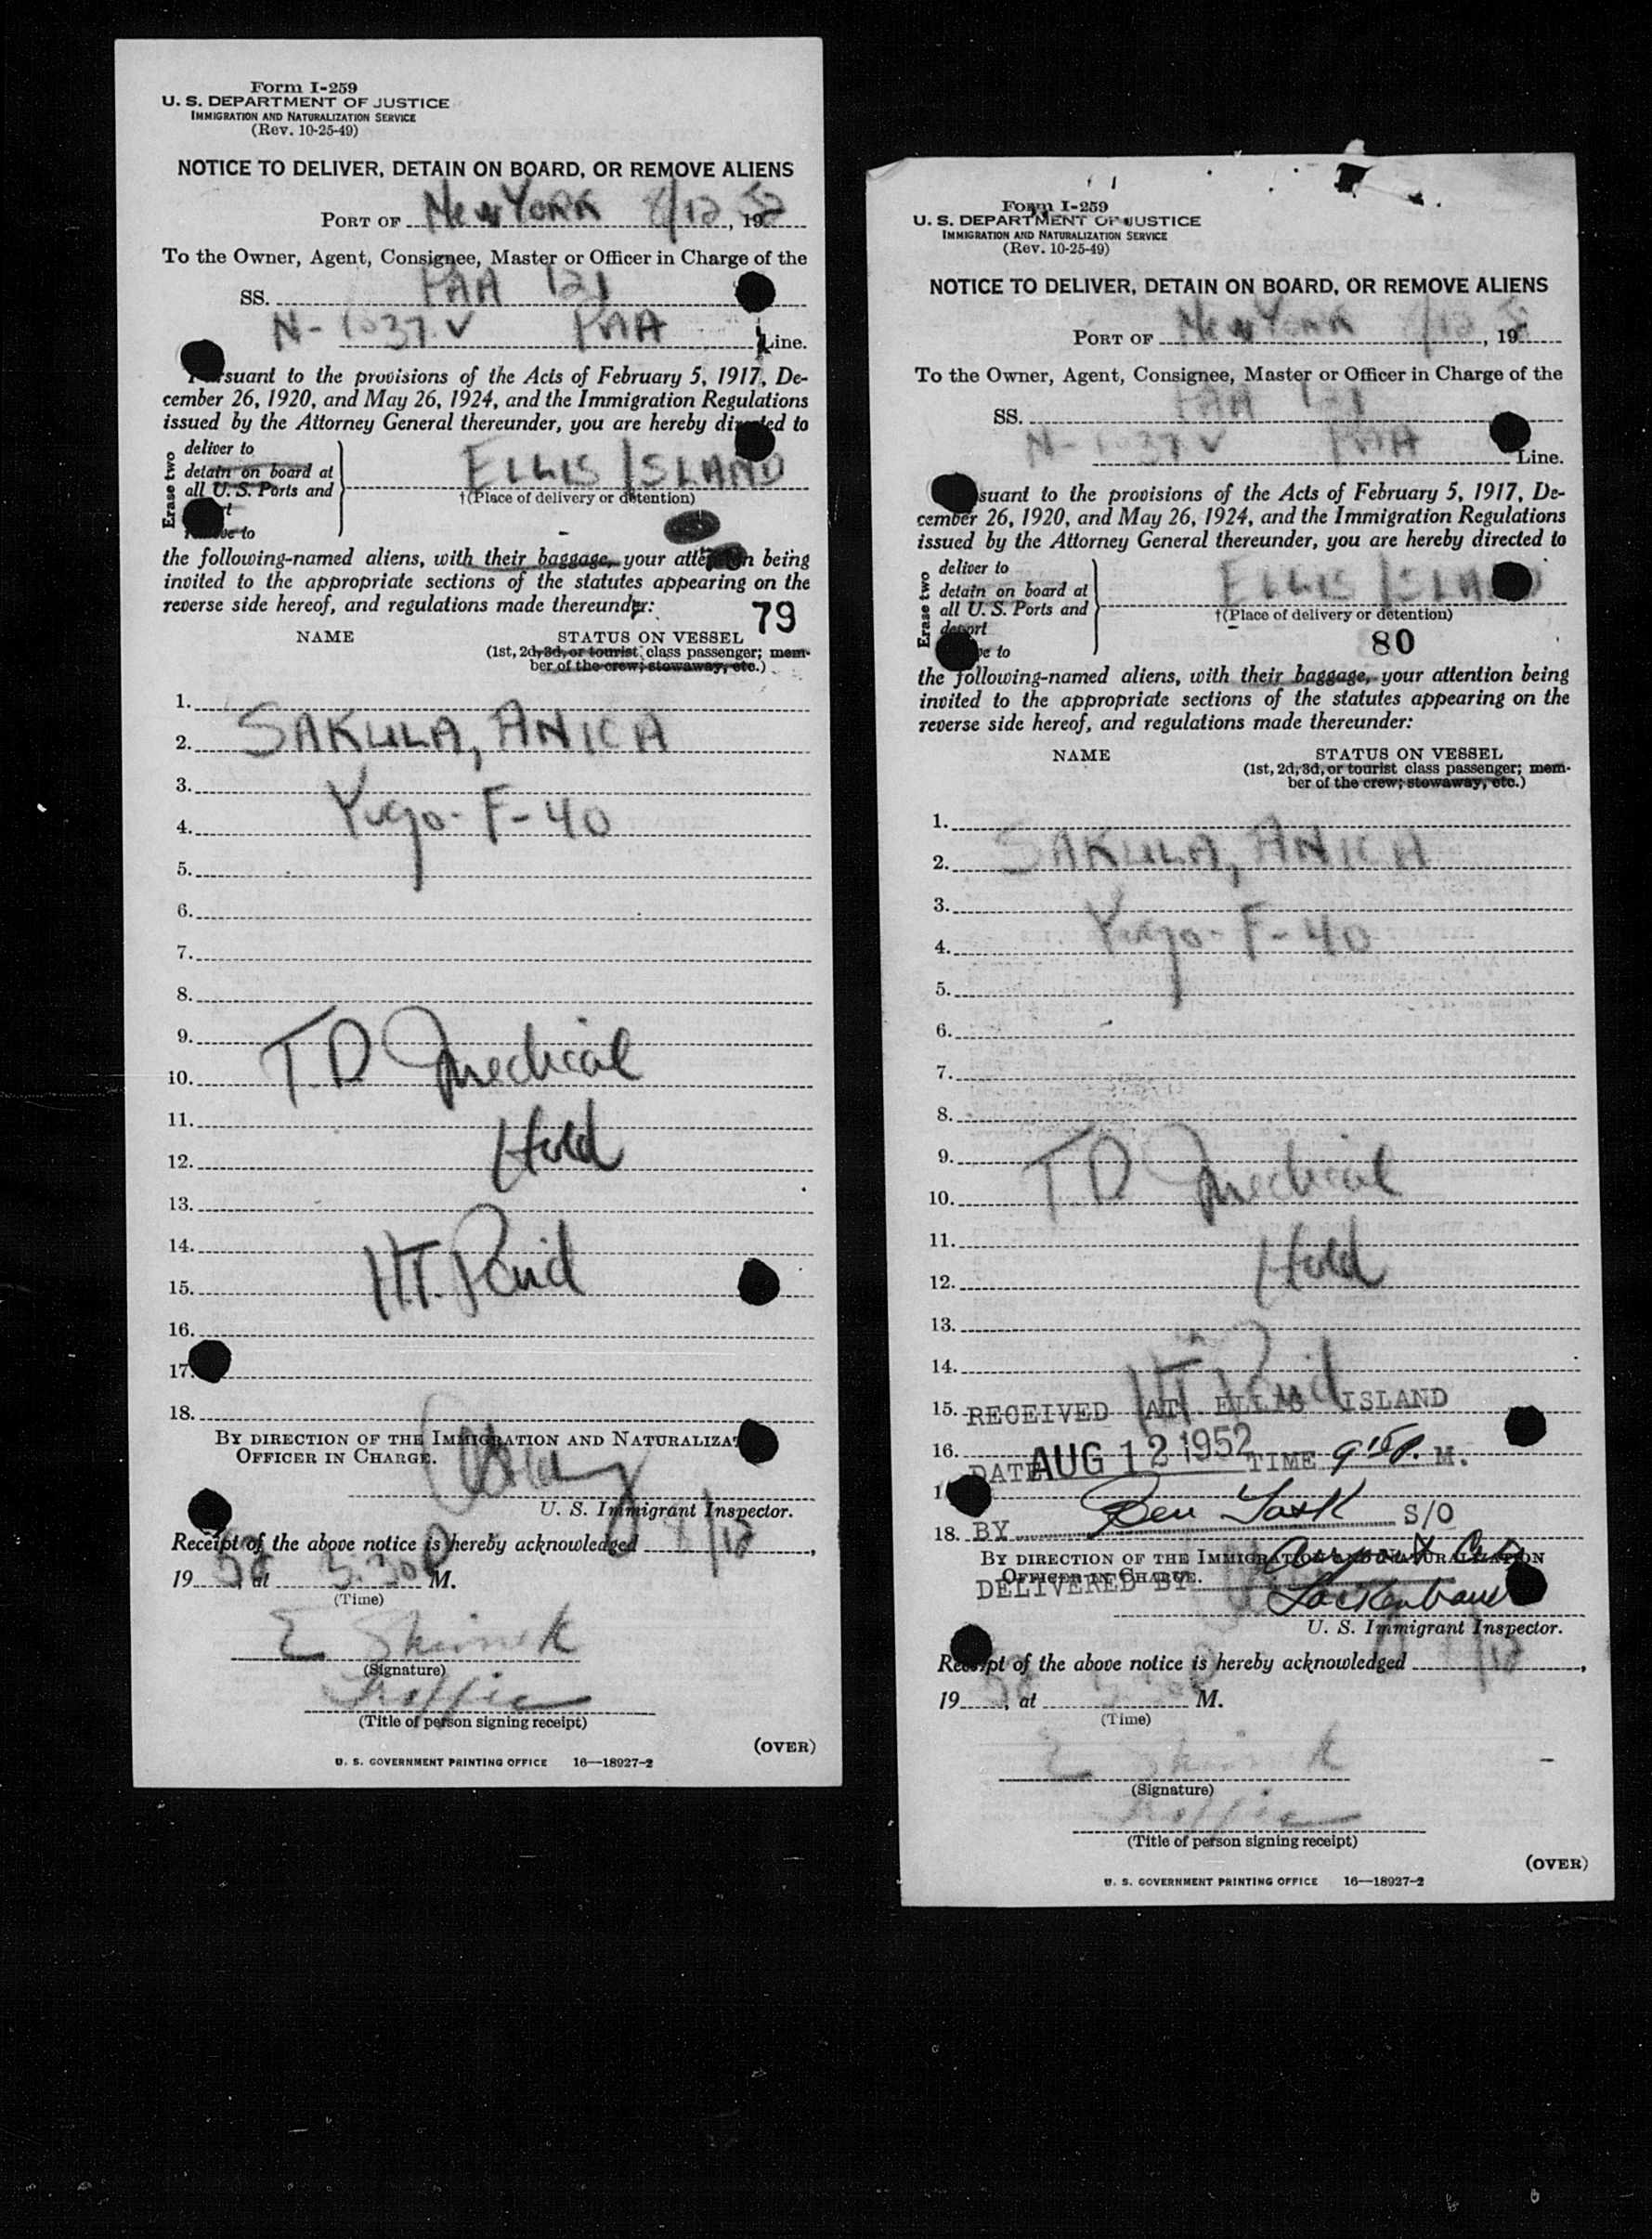 Form I-259
U. S. DEPARTMENT OF JUSTICE
IMMIGRATION AND NATURALIZATION SERVICE
(Rev. 10-25-49)
NOTICE TO DELIVER, DETAIN ON BOARD, OR REMOVE ALIENS
PORT OF New York 8/12, 1952
To the Owner, Agent, Consignee, Master or Officer in Charge of the
SS. PAA 121
N-1037.V PAA Line.
suant to the provisions of the Acts of February 5, 1917, De-
cember 26, 1920, and May 26, 1924, and the Immigration Regulations
issued by the Attorney General thereunder, you are hereby directed to
Erase two
deliver to
detain on board at
all U. S. Ports and
ELLIS ISLAND
†(Place of delivery or detention)
to
the following-named aliens, with their baggage, your attention being
invited to the appropriate sections of the statutes appearing on the
reverse side hereof, and regulations made thereunder:
79
NAME STATUS ON VESSEL
(1st, 2d, 3d, or tourist class passenger; mem-
ber of the crew; stowaway, etc.)
1.
2. SAKULA, ANICA
3.
4. Yugo- F-40
5.
6.
7.
8.
9.
10. T.D Medical
11.
12. Hold
13.
14.
15. H.T. Paid
16.
17.
18.
BY DIRECTION OF THE IMMIGRATION AND NATURALIZAT
OFFICER IN CHARGE.
U. S. Immigrant Inspector.
Receipt of the above notice is hereby acknowledged 8/12,
1952, at 3:30 P M.
(Time)
E
(Signature)
Traffic
(Title of person signing receipt)
(OVER)
U. S. GOVERNMENT PRINTING OFFICE 16—18927-2
Form I-259
U. S. DEPARTMENT OF JUSTICE
IMMIGRATION AND NATURALIZATION SERVICE
(Rev. 10-25-49)
NOTICE TO DELIVER, DETAIN ON BOARD, OR REMOVE ALIENS
PORT OF New York 8/12, 195
To the Owner, Agent, Consignee, Master or Officer in Charge of the
SS. PAA 121
N-1037.V PAA Line.
suant to the provisions of the Acts of February 5, 1917, De-
cember 26, 1920, and May 26, 1924, and the Immigration Regulations
issued by the Attorney General thereunder, you are hereby directed to
Erase two
deliver to
detain on board at
all U. S. Ports and
deport
ELLIS ISLAND
†(Place of delivery or detention)
to
80
the following-named aliens, with their baggage, your attention being
invited to the appropriate sections of the statutes appearing on the
reverse side hereof, and regulations made thereunder:
NAME STATUS ON VESSEL
(1st, 2d, 3d, or tourist class passenger; mem-
ber of the crew; stowaway, etc.)
1.
2. SAKULA, ANICA
3.
4. Yugo- F-40
5.
6.
7.
8.
9.
10. T.D Medical
11.
12. Hold
13.
14. H.T. Paid
15. RECEIVED AT ELLIS ISLAND
16. DATE AUG 12 1952 TIME 9 15 P. M.
1
18. BY Ben S/O
BY DIRECTION OF THE IMMIGRATION AND NATURALIZATION
OFFICER IN CHARGE.
DELIVERED BY
U. S. Immigrant Inspector.
Receipt of the above notice is hereby acknowledged 8/12,
1952, at 3:30 P M.
(Time)
E
(Signature)
Traffic
(Title of person signing receipt)
(OVER)
U. S. GOVERNMENT PRINTING OFFICE 16—18927-2